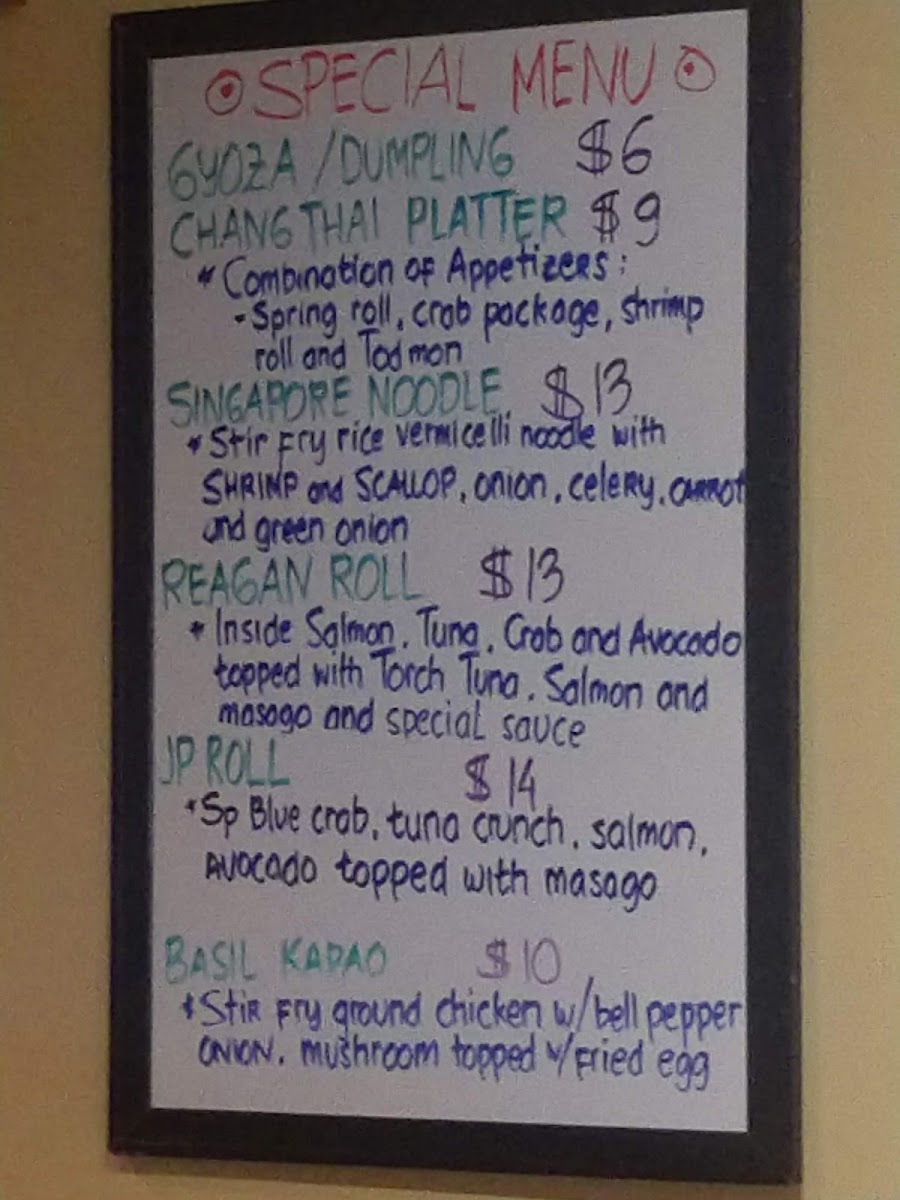 SPECIAL MENU
GYOZA /DUMPLING $6
CHANG THAI PLATTER $9
* Combination of Appetizers:
- Spring roll, crab package, shrimp
roll and Tod mon
SINGAPORE NOODLE $13
* Stir Fry rice vermicelli noodle with
SHRIMP and SCALLOP, onion, celery, carrot
and green onion
REAGAN ROLL $13
* Inside Salmon, Tuna, Crab and Avocado
topped with Torch Tuna, Salmon and
masago and special sauce
JP ROLL $14
* Sp Blue crab, tuna crunch, salmon,
Avocado topped with masago
BASIL KAPAO $10
* Stir Fry ground chicken w/bell pepper
onion, mushroom topped w/Fried egg